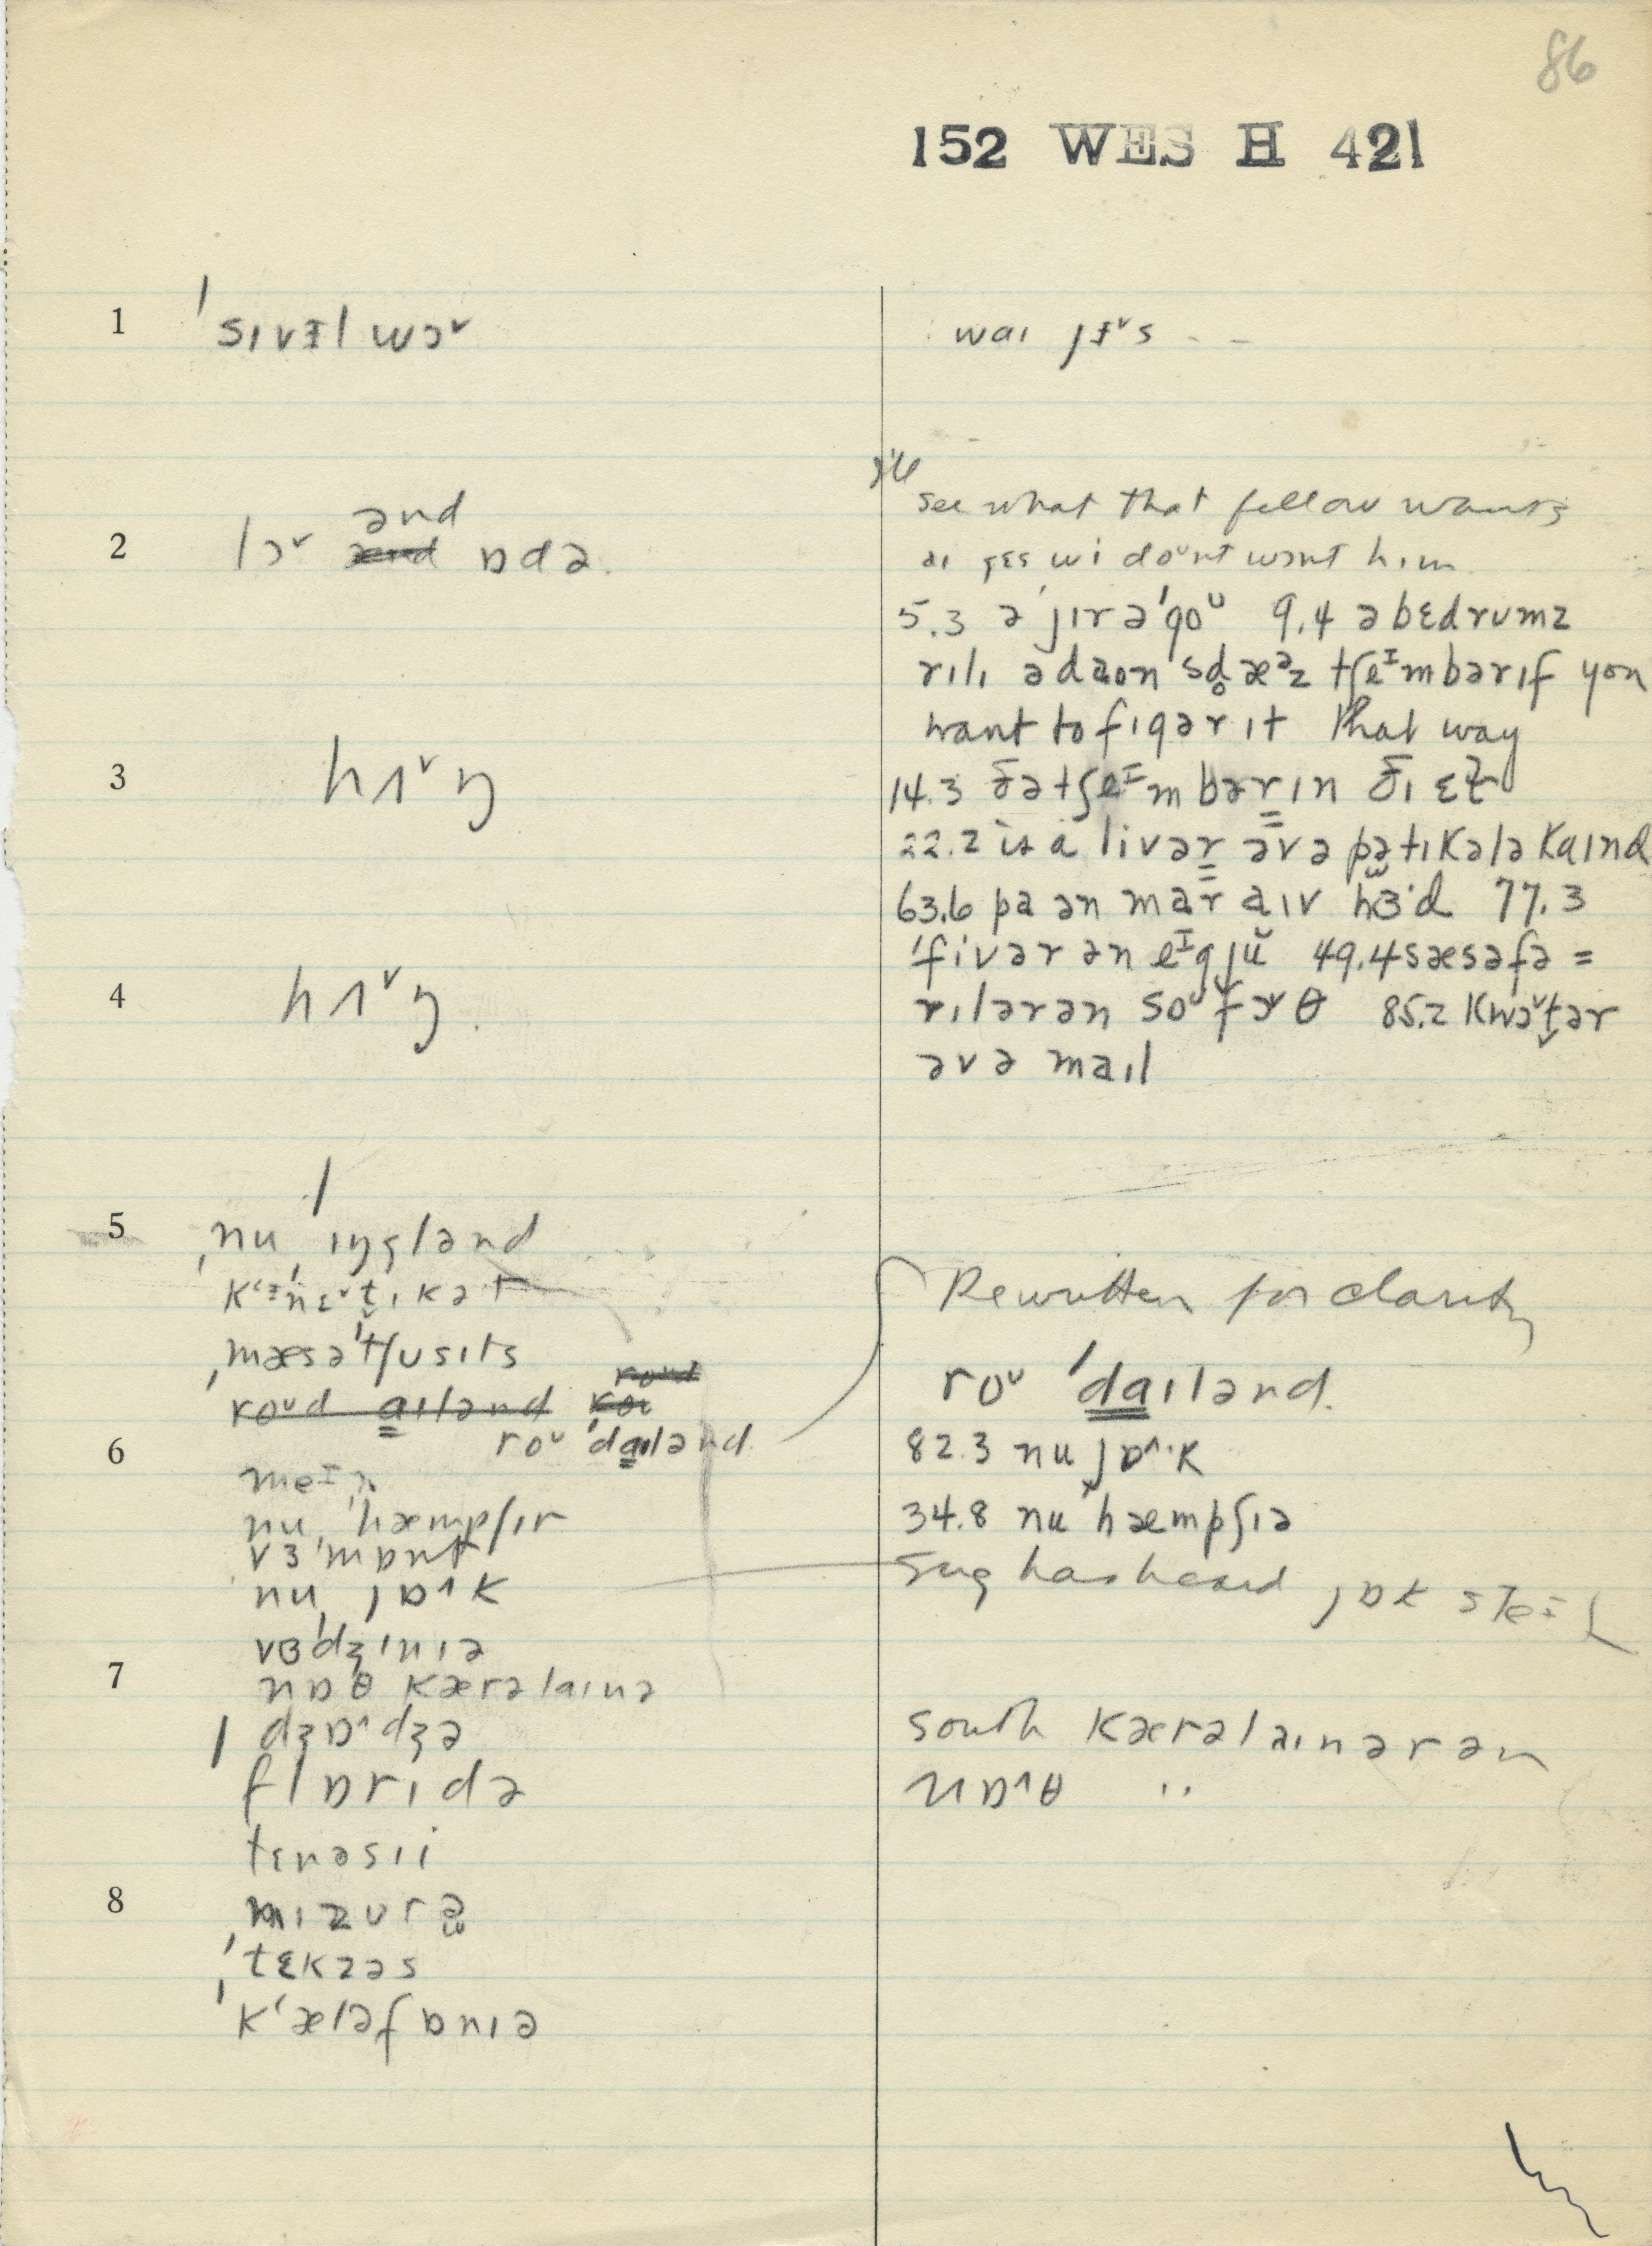 86
152 WES H 421
1
ˈsɪvɪ̵l wɔ˅
2
lɔ˅ ənd ɒdə.
3
hʌ˅ŋ
4
hʌ˅ŋ.
5
ˌnu ˈɪŋglənd
ˌmæsəˈtʃusɪts
roᵘd aɪlənd
roᵘ ˈdaɪlənd
6
meᴵn
nu ˈhæmpʃɪr
nu jɒ^k
vɜˈdʒɪnɪə
7
nɒθ kærəlaɪnə
dʒɒ^dʒə
flɒrɪdə
tɛnəsɪi
8
mɪzʊrə
ˈtɛkzəs
ˈkʻæləfɒnɪə
waɪ jɪ̵˅s - -
see what that fellow wants
aɪ gɛs wi doᵘnt wɔnt hɪm
5.3 əˈjɪrəˈgoᵁ 9.4 əbɛdrʊmz
rɪlɪ ədaʊn sd̥æᵊz tʃeᴵmbərɪf you
want to fɪgər ɪt that way
14.3 ðətʃeᴵmbərɪn ðɪ ɛl
22.2 is a livər əvə pətɪkələ kaɪnd
63.6 pa ən mar aɪv hɜ·d 77.3
ˈfivər ən eᴵgjŭ 49.4 sæsəfə =
rɪlərən soᵘ fɔθ 85.2 kwɔ˅t̬ər
əvə maɪl
Rewritten for clarity
roᵘ ˈdaɪlənd.
82.3 nu jɒ^·k
34.8 nu ˈhæmpʃɪə
Sug has heard jɒk steᴵt
south kærəlaɪnərən
nɒ^θ "